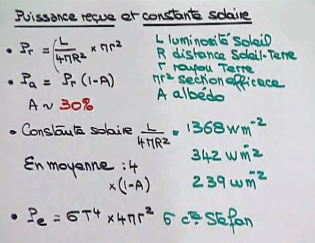 Puissance reçue et constante solaire
• Pr = (L/4πR² × πr²
L luminosité Soleil
R distance Soleil-Terre
r rayon Terre
πr² section efficace
A albédo
• Pa = Pr (1-A)
A ~ 30%
• Constante solaire L/4πR² = 1368 W m⁻²
En moyenne : 4 342 W m⁻²
×(1-A) 239 W m⁻²
• Pe = σT⁴ × 4πr² σ cte Stefan